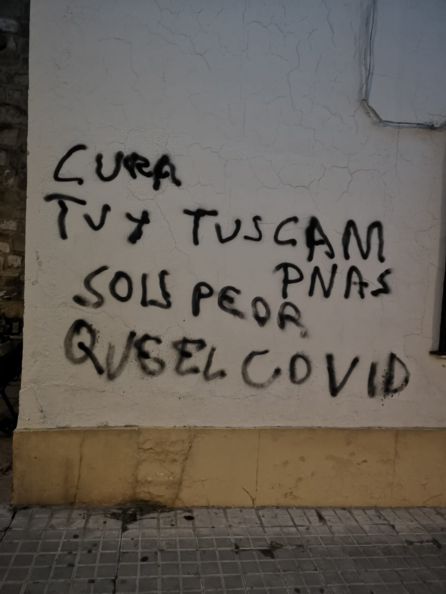 CURA
TU Y TUSCAM
PNAS
SOIS PEOR
QUE EL COVID